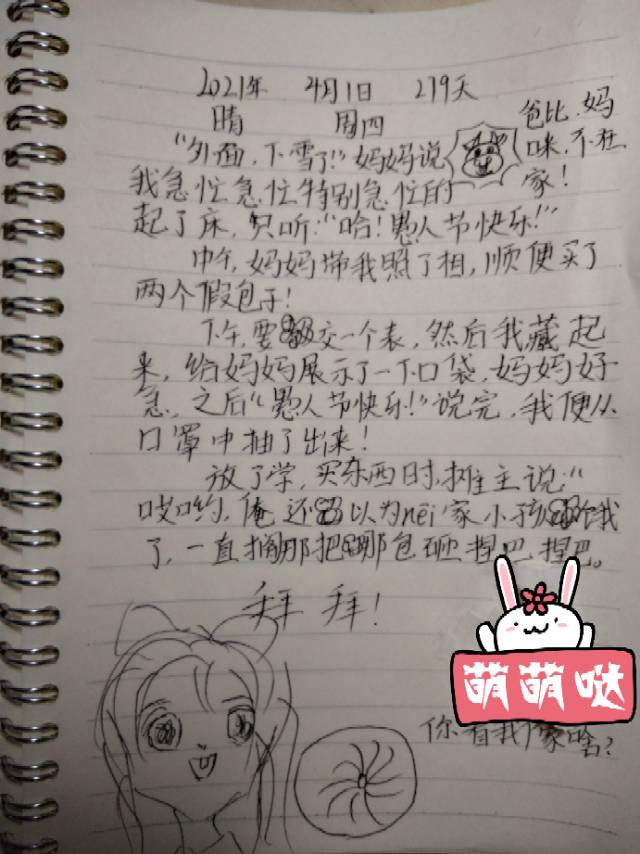 2021年 4月1日 279天
晴 周四
爸比、妈
咪,不在
家!
“外面,下雪了!”妈妈说
我急忙急忙特别急忙的
起了床,只听:“哈!愚人节快乐!”
中午,妈妈带我照了相,顺便买了
两个假包子!
下午,要交一个表,然后我藏起
来,给妈妈展示了一下口袋,妈妈好
急,之后“愚人节快乐!”说完,我便从
口罩中抽了出来!
放了学,买东西时,摊主说:“
哎哟,俺还以为nèi家小孩饿
了,一直搁那把那包砸捏巴捏巴。
拜拜!
萌萌哒
你看我像啥?